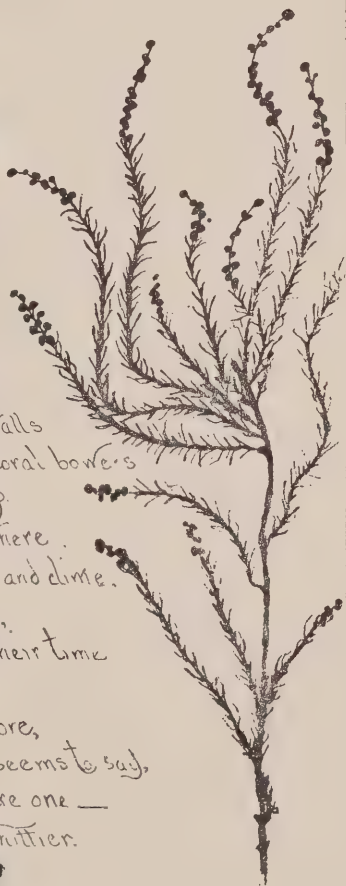 alls
oral bowers
g.
here.
and clime.
,
heir time
ore,
seems to say,
re one —
hittier.